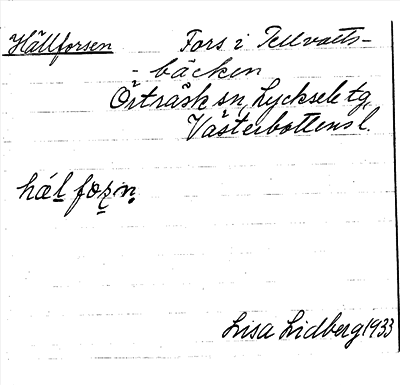 Hällforsen Fors i Tellvatts-
- bäcken
Örträsk sn, Lycksele tg,
Västerbottens l.
hál foṣn.
Lisa Lidberg 1933